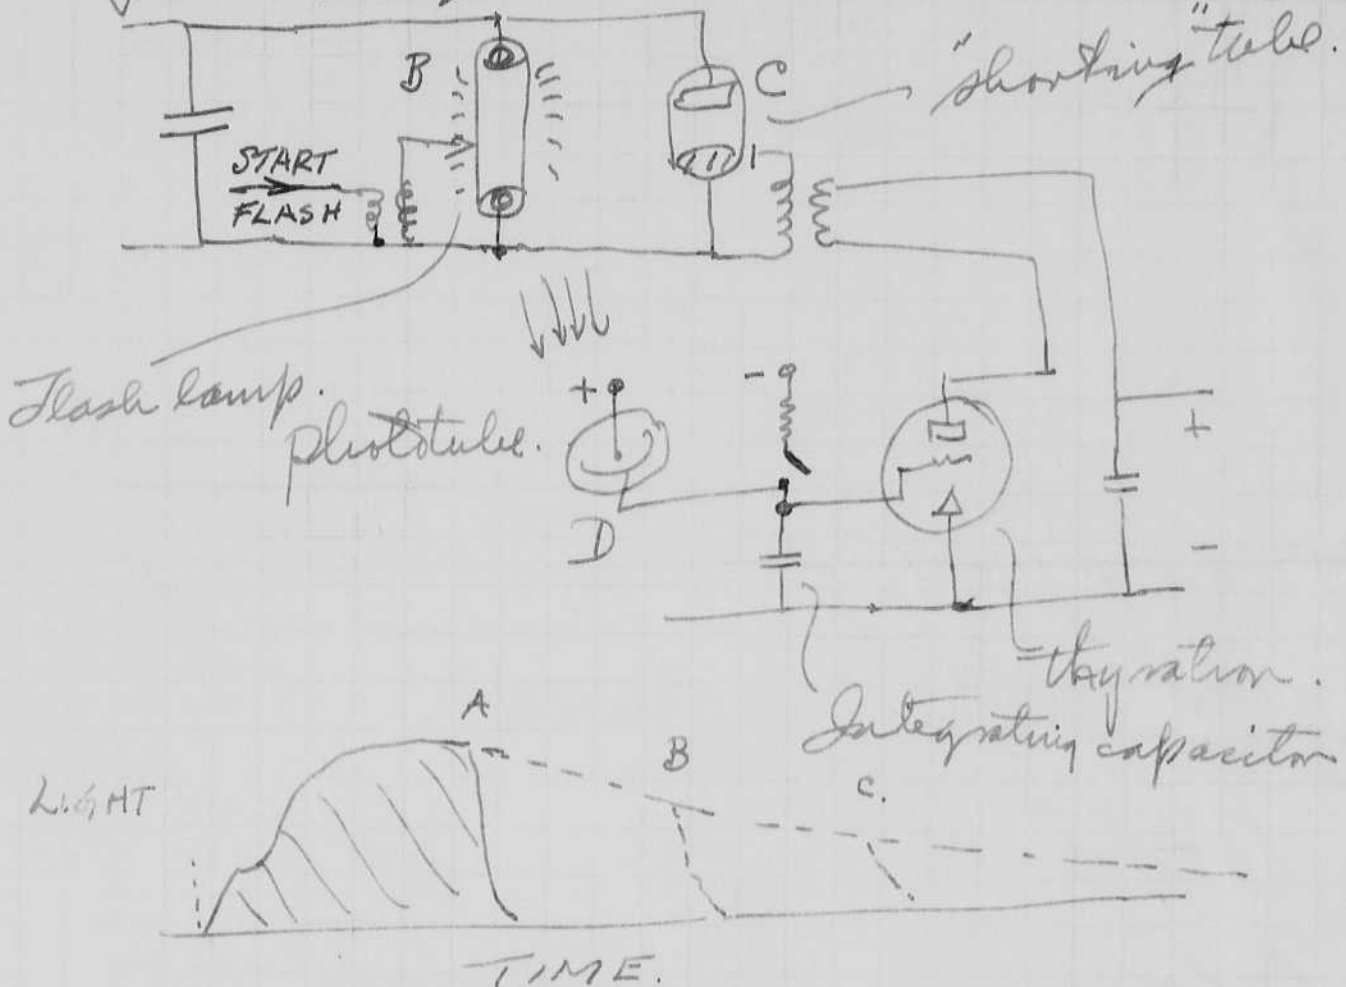 B
C
"shorting" tube.
START
FLASH
Flash lamp.
phototube.
+
-
D
+
-
thyratron.
Integrating capacitor
A
B
C.
LIGHT
TIME.